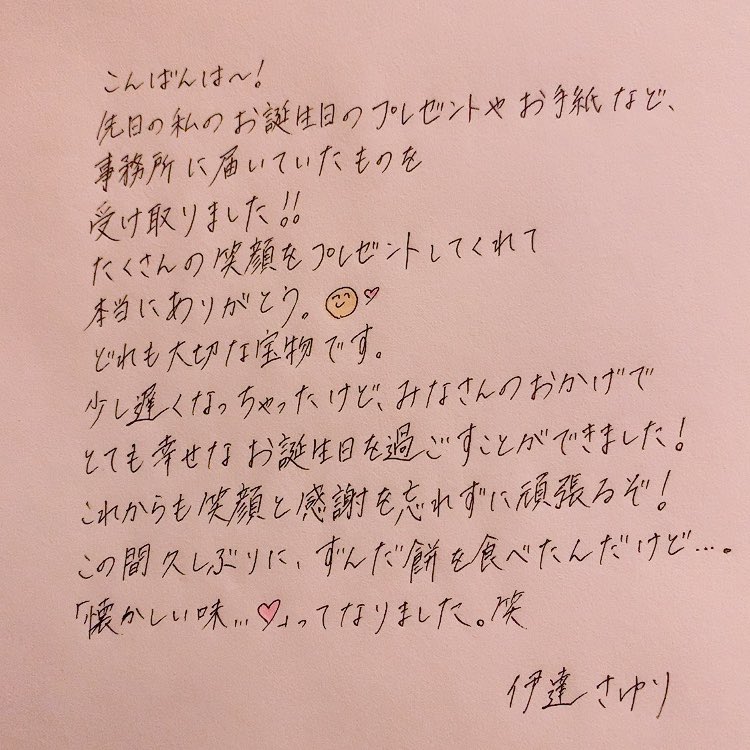 こんばんは〜!
先日の私のお誕生日のプレゼントやお手紙など、
事務所に届いていたものを
受け取りました!!
たくさんの笑顔をプレゼントしてくれて
本当にありがとう。
どれも大切な宝物です。
少し遅くなっちゃったけど、みなさんのおかげで
とても幸せなお誕生日を過ごすことができました!
これからも笑顔と感謝を忘れずに頑張るぞ!
この間久しぶりに、ずんだ餅を食べたんだけど…。
「懐かしい味…♡」ってなりました。笑
伊達さゆり